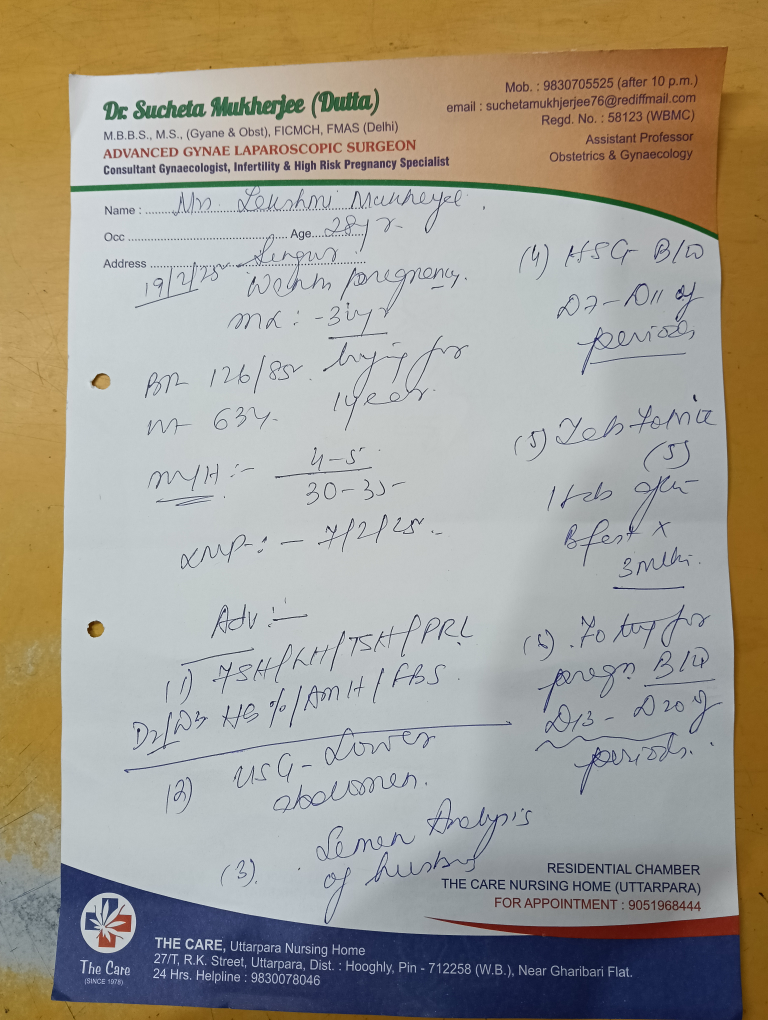 Dr. Sucheta Mukherjee (Dutta)
M.B.B.S., M.S., (Gyane & Obst), FICMCH, FMAS (Delhi)
ADVANCED GYNAE LAPAROSCOPIC SURGEON
Consultant Gynaecologist, Infertility & High Risk Pregnancy Specialist
Mob. : 9830705525 (after 10 p.m.)
email : suchetamukhjerjee76@rediffmail.com
Regd. No. : 58123 (WBMC)
Assistant Professor
Obstetrics & Gynaecology
Name : Mrs. Lakshmi Mukherjee.
Occ Age 28yr.
Address Singur
19/2/25 Wants pregnancy.
- 3 yr
BP 126/85 trying for
wt 63 1 year.
M/H :- 4-5
30-35
LMP :- 7/2/25
Adv :-
(1) FSH/LH/TSH/PRL
D2/D3 HB%/AMH/FBS
(2) USG - Lower
abdomen.
(3) Semen Analysis
of husband
(4) HSG B/W
D7-D11 of
periods
(5) Tab
(5)
1 tab after
Bfast x
3 mths.
(6) To try for
pregn. B/W
D13 - D20 of
periods.
RESIDENTIAL CHAMBER
THE CARE NURSING HOME (UTTARPARA)
FOR APPOINTMENT : 9051968444
The Care
(SINCE 1978)
THE CARE, Uttarpara Nursing Home
27/T, R.K. Street, Uttarpara, Dist. : Hooghly, Pin - 712258 (W.B.), Near Gharibari Flat.
24 Hrs. Helpline : 9830078046